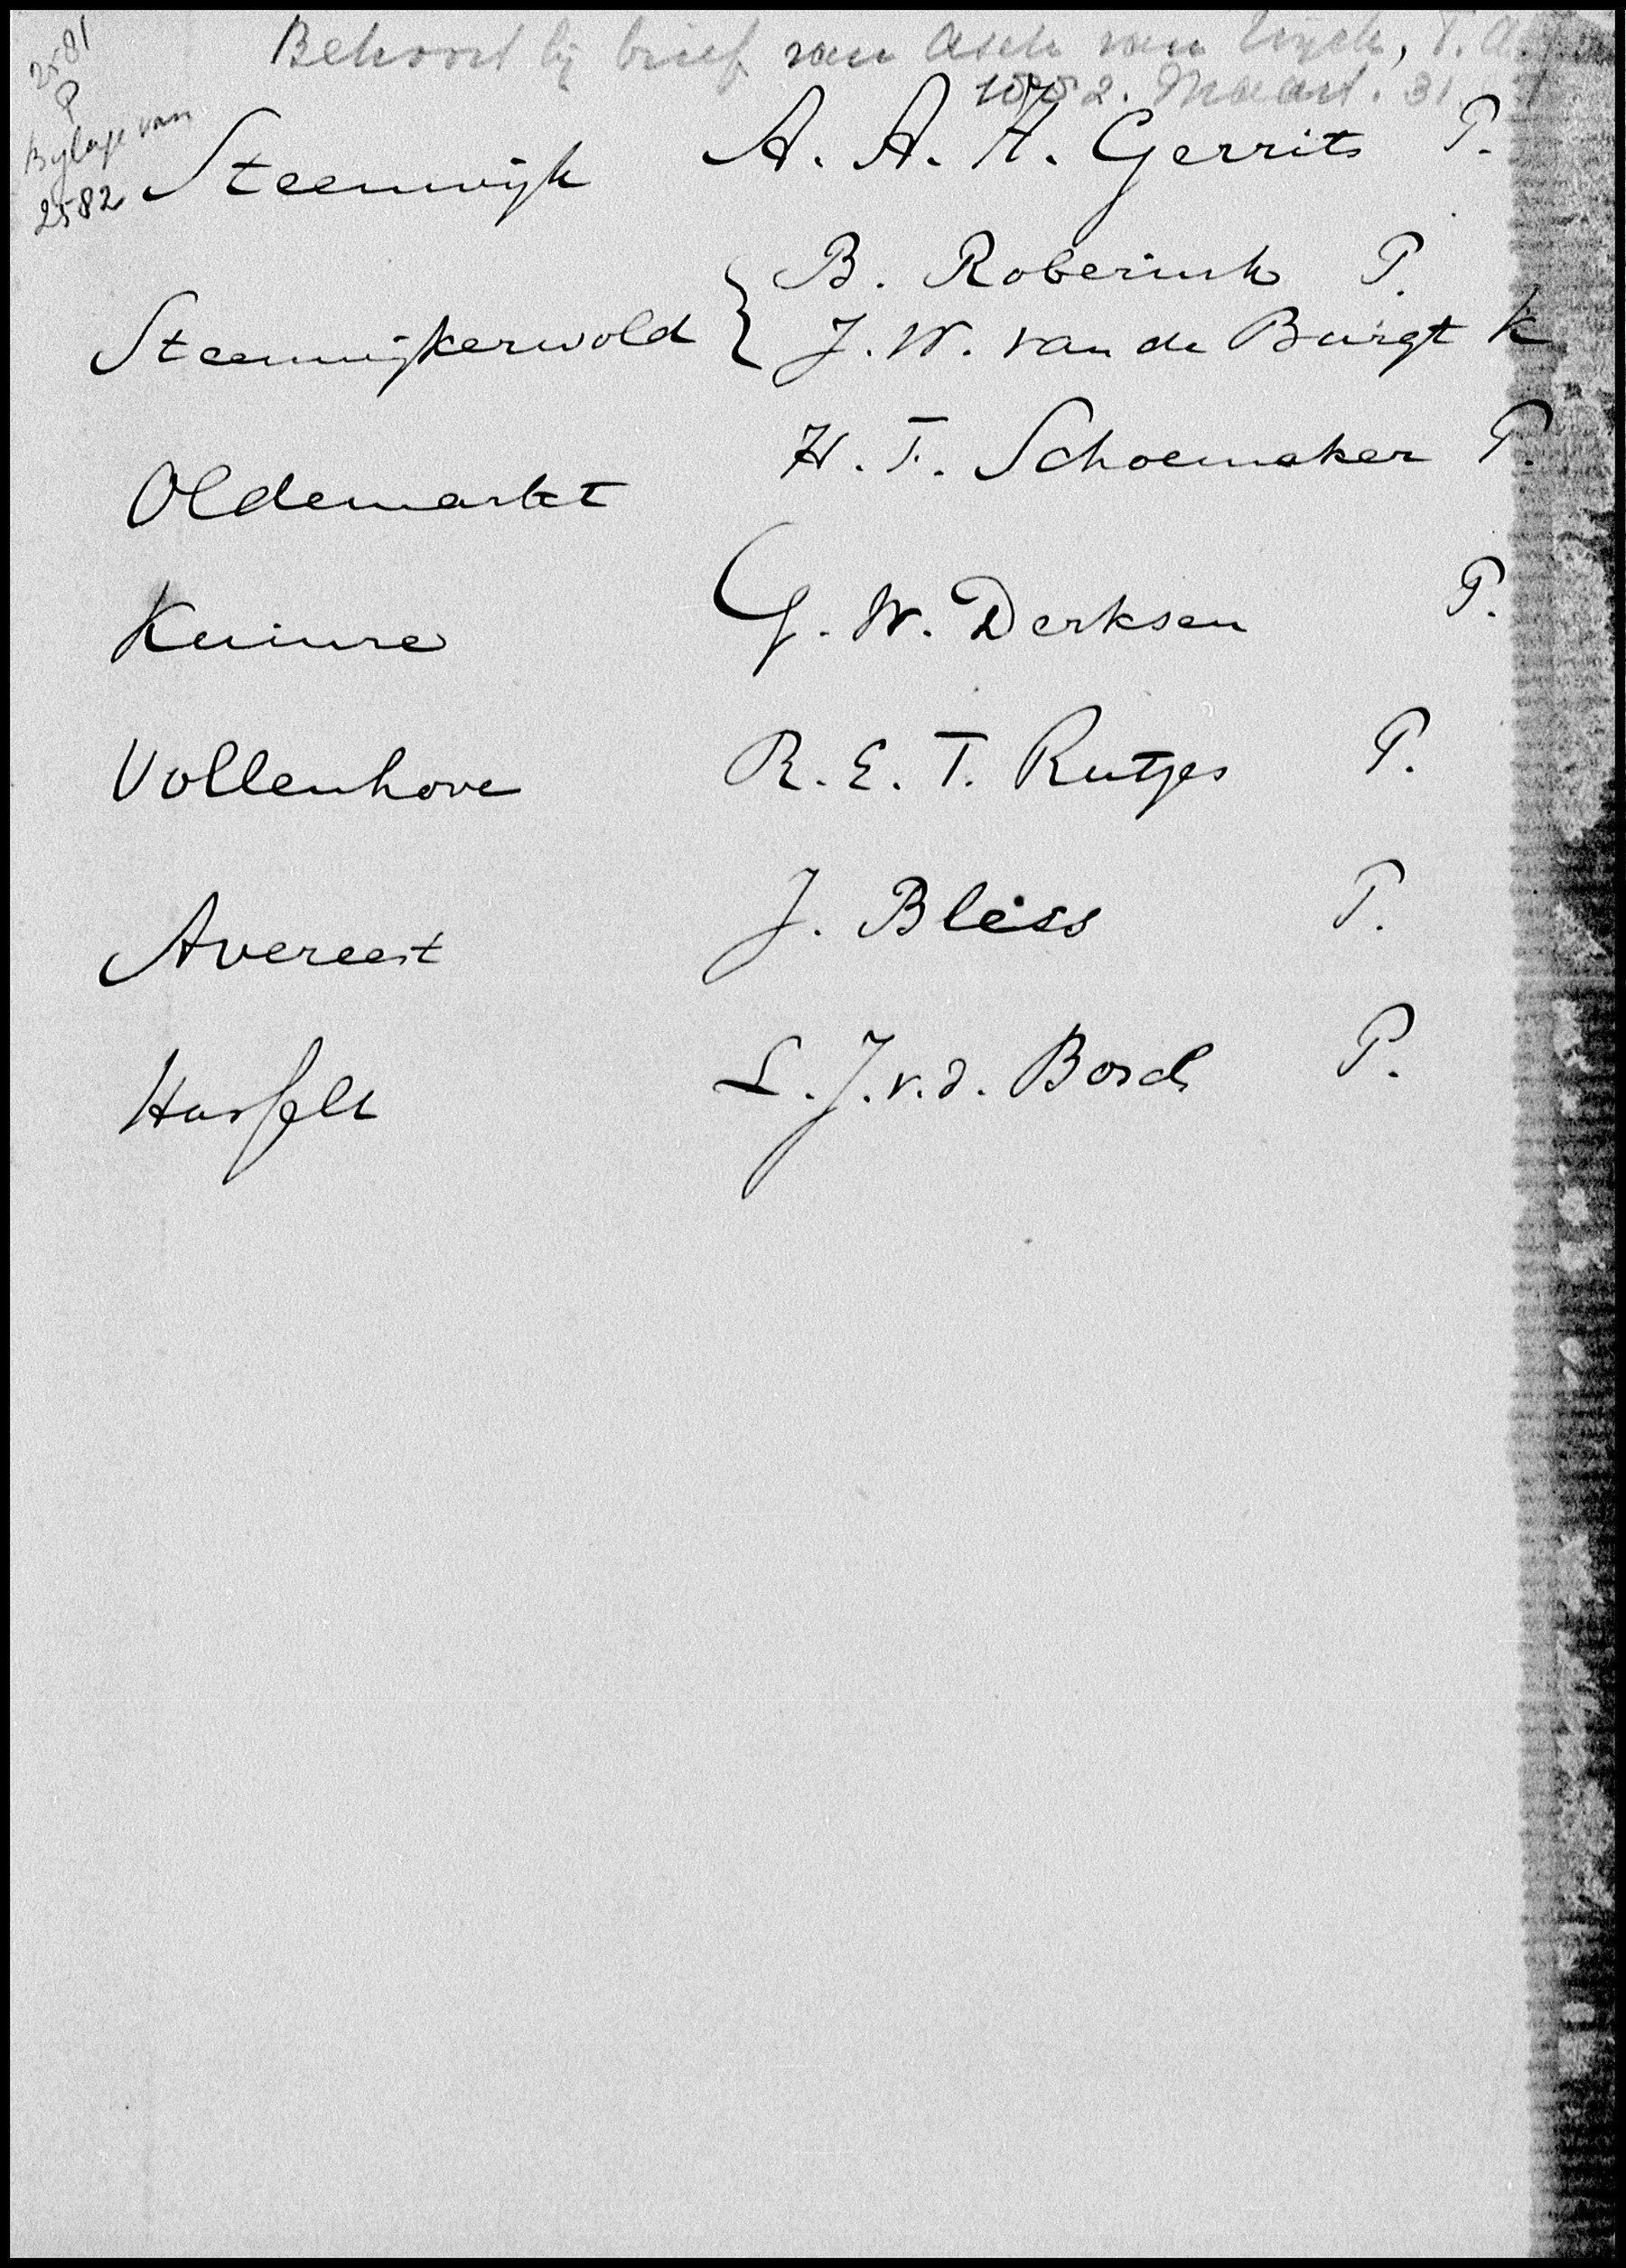 2581
P
Bylage van
2582
Behoort bij brief van Asch van Wijck, T. A. J. van
1882. Maart. 31
Steenwijk A. A. A. Gerrits P.
Steenwijkerwold { B. Roberink P.
J. W. van de Burgt K
Oldemarkt H. F. Schoemaker P.
Kuinre G. W. Derksen P.
Vollenhove R. E. T. Rutges P.
Avereest J. Bleiss P.
Hasselt L. J. v. d. Bosch P.